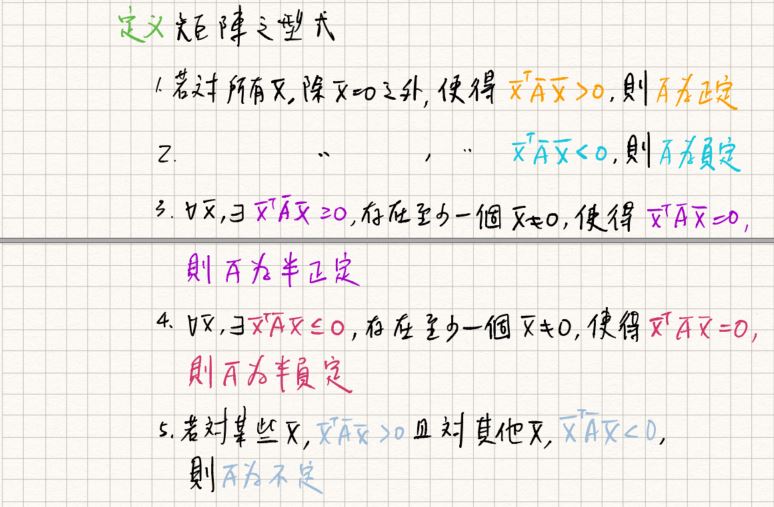 定义 矩陣之型式
1. 若对所有x̄, 除x̄=0之外, 使得 x̄ᵀĀx̄>0, 則Ā为正定
2. 〃 , 〃 x̄ᵀĀx̄<0, 則Ā为負定
3. ∀x̄, ∃ x̄ᵀĀx̄≥0, 存在至少一個 x̄≠0, 使得 x̄ᵀĀx̄=0,
則Ā为半正定
4. ∀x̄, ∃x̄ᵀĀx̄≤0, 存在至少一個 x̄≠0, 使得 x̄ᵀĀx̄=0,
則Ā为半負定
5. 若対某些x̄, x̄ᵀĀx̄>0 且対其他x̄, x̄ᵀĀx̄<0,
則Ā为不定